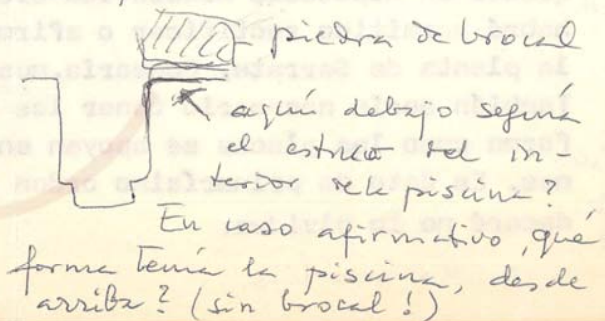 piedra de brocal
aquí debajo seguía
el estuco del in
terior de la piscina?
En caso afirmativo, qué
forma tenía la piscina, desde
arriba? (sin brocal!)